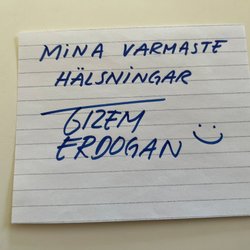 MINA VARMASTE
HÄLSNINGAR
GIZEM
ERDOGAN